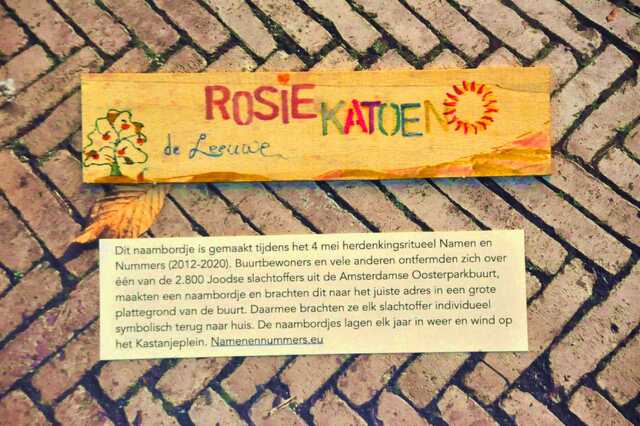 ROSIE KATOEN
de Leeuwe
Dit naambordje is gemaakt tijdens het 4 mei herdenkingsritueel Namen en
Nummers (2012-2020). Buurtbewoners en vele anderen ontfermden zich over
één van de 2.800 Joodse slachtoffers uit de Amsterdamse Oosterparkbuurt,
maakten een naambordje en brachten dit naar het juiste adres in een grote
plattegrond van de buurt. Daarmee brachten ze elk slachtoffer individueel
symbolisch terug naar huis. De naambordjes lagen elk jaar in weer en wind op
het Kastanjeplein. Namenennummers.eu